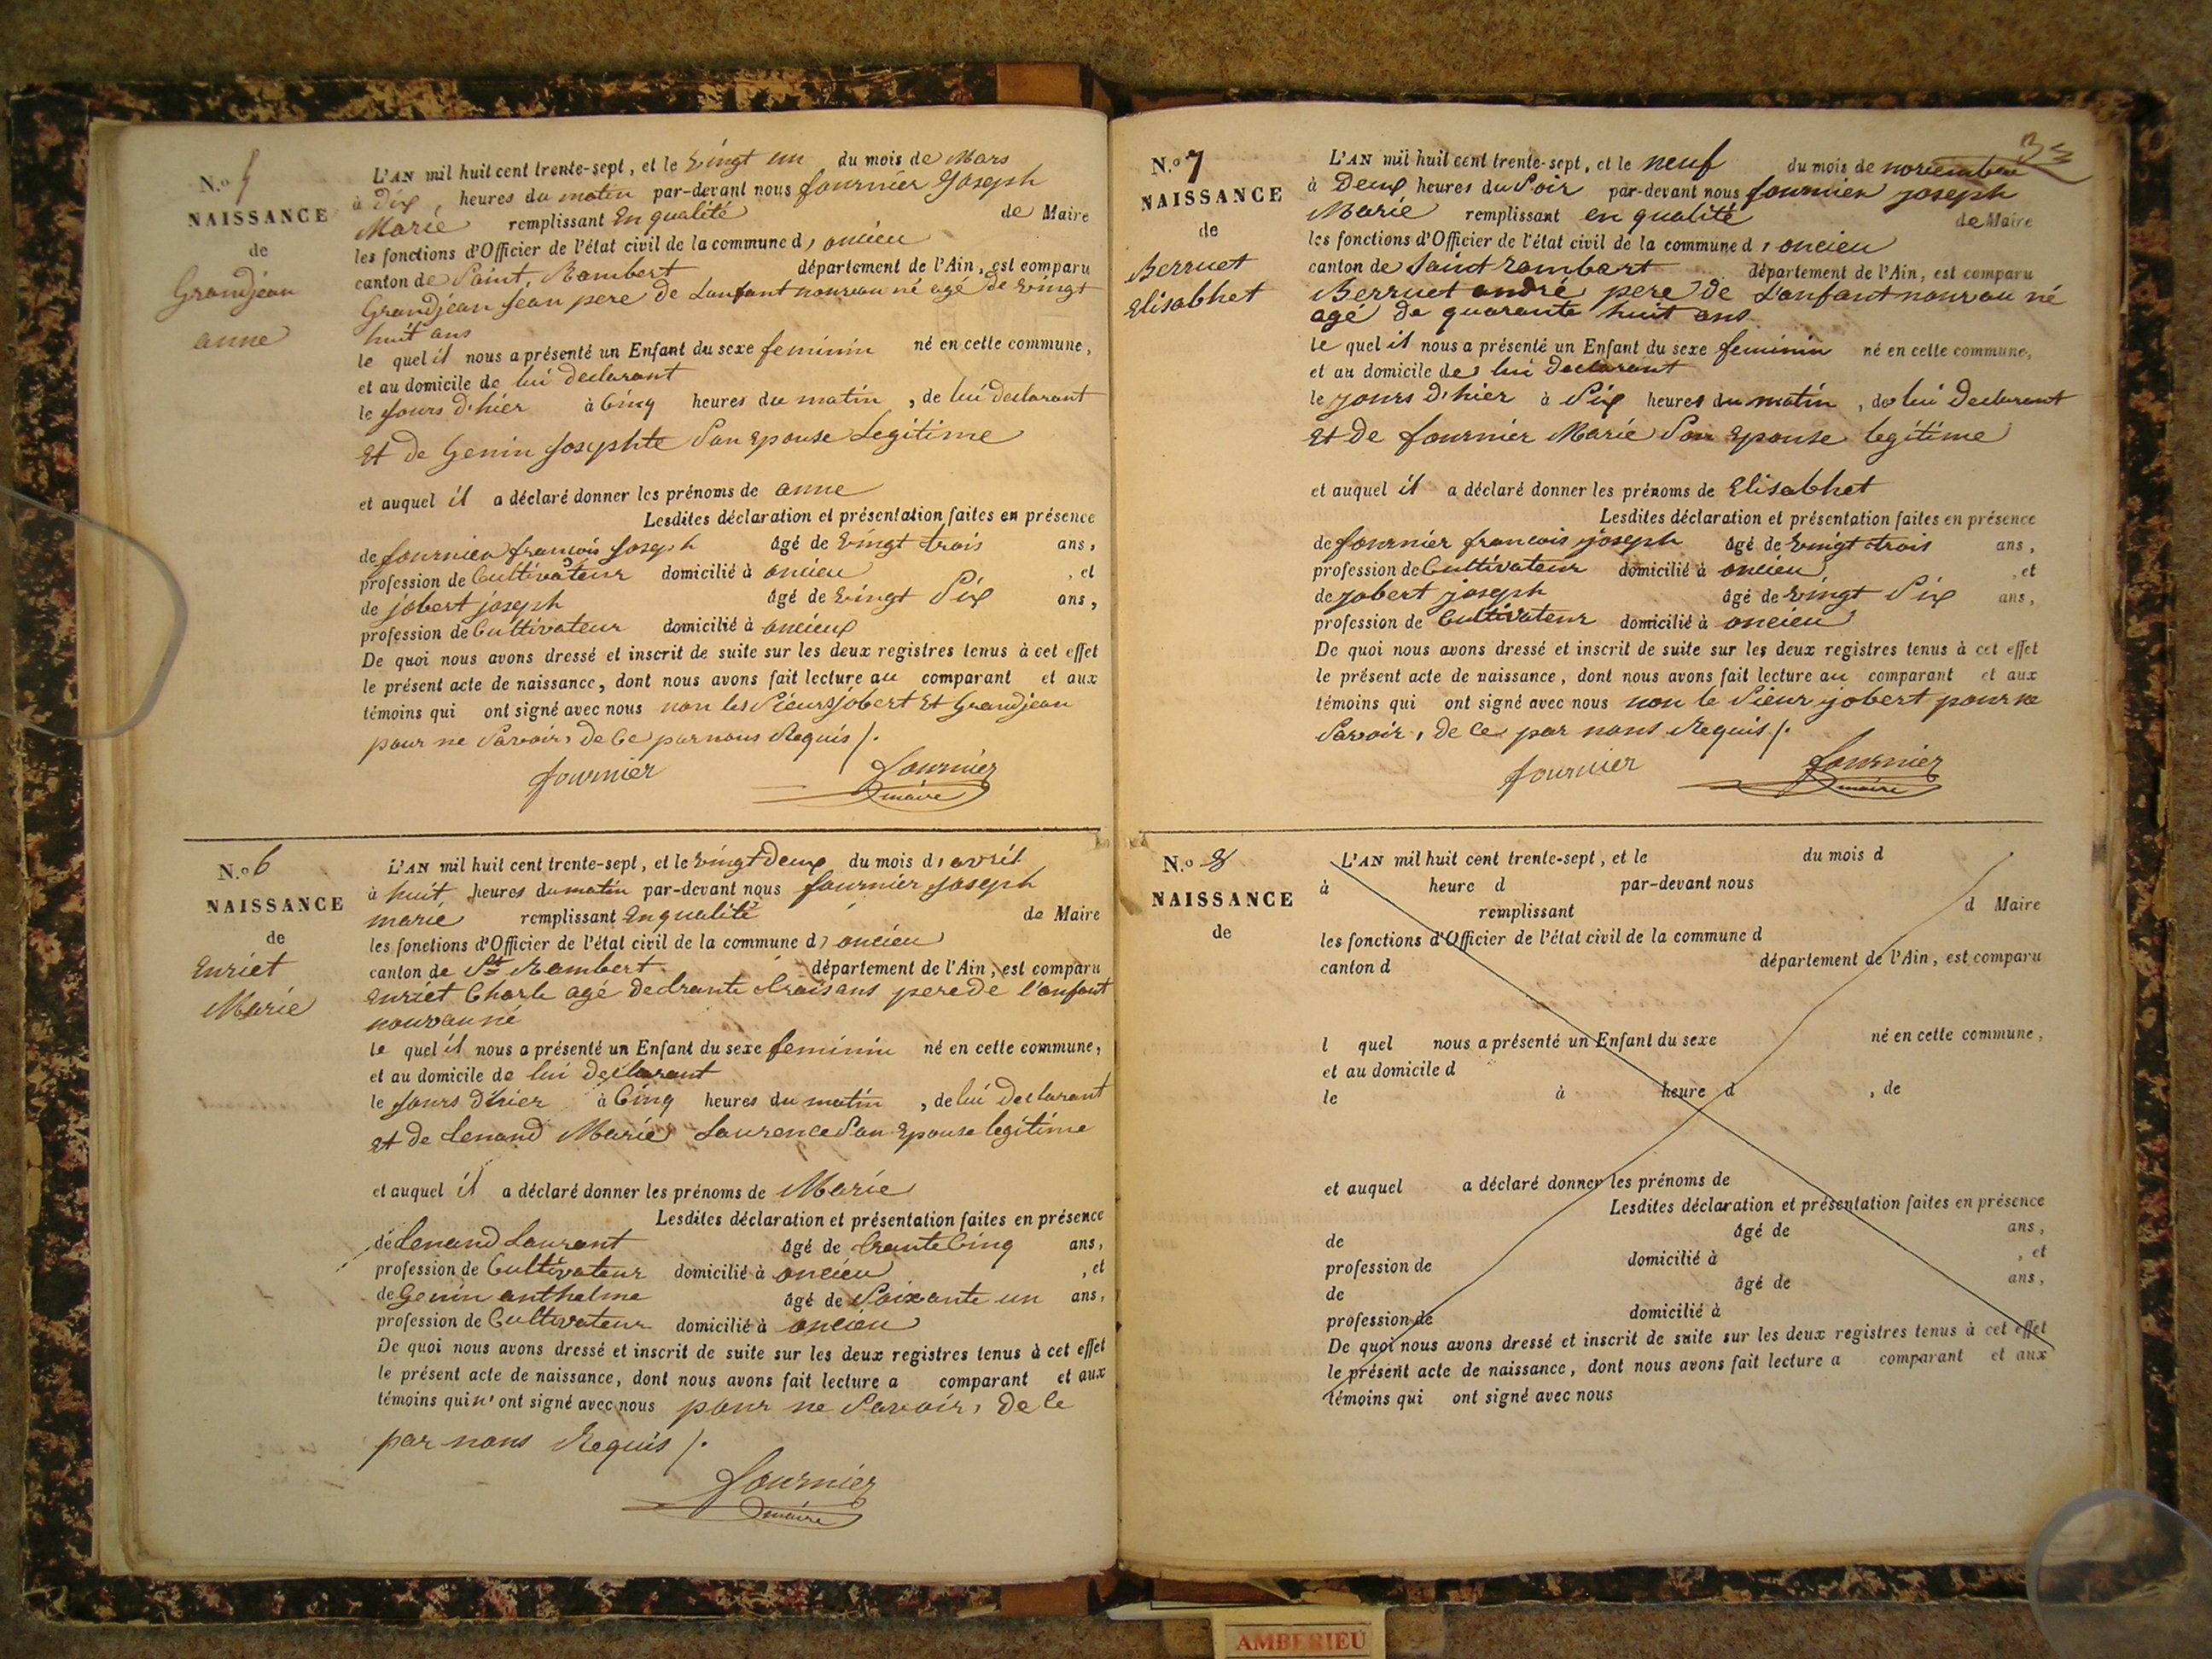 N.º 5
NAISSANCE
de
Grandjean
anne
L'AN mil huit cent trente-sept, et le vingt un du mois de Mars
à dix, heures du matin par-devant nous fournier Joseph
Marie remplissant En qualité de Maire
les fonctions d'Officier de l'état civil de la commune d, oncieu
canton de Saint, Rambert département de l'Ain, est comparu
Grandjean Jean pere de Lanfant nouveau né agé de vingt
huit ans
le quel il nous a présenté un Enfant du sexe feminin né en cette commune,
et au domicile de lui declarant
le Jours d'hier à Cinq heures du matin, de lui declarant
Et de Genin Josephte Son Epouse Legitime
et auquel il a déclaré donner les prénoms de anne
Lesdites déclaration et présentation faites en présence
de fournier francois Joseph âgé de vingt trois ans,
profession de Cultivateur domicilié à oncieu, et
de jobert joseph âgé de vingt Six ans,
profession de Cultivateur domicilié à oncieux
De quoi nous avons dressé et inscrit de suite sur les deux registres tenus à cet effet
le présent acte de naissance, dont nous avons fait lecture au comparant et aux
témoins qui ont signé avec nous non les Sieurs jobert Et Grandjean
pour ne Savoir, de Ce par nous Requis /.
fournier fournier
maire
N.º 6
NAISSANCE
de
Enriet
Marie
L'AN mil huit cent trente-sept, et le vingt Deux du mois d, avril
à huit heures du matin par-devant nous fournier Joseph
marie remplissant En qualité de Maire
les fonctions d'Officier de l'état civil de la commune d, oncieu
canton de St Rambert département de l'Ain, est comparu
Enriet Charle agé de trante trois ans pere de l'anfant
nouvau né
le quel il nous a présenté un Enfant du sexe feminin né en cette commune,
et au domicile de lui declarant
le Jours d'hier à Cinq heures du matin, de lui declarant
Et de Lenand Marie Laurence Son Epouse legitime
et auquel il a déclaré donner les prénoms de Marie
Lesdites déclaration et présentation faites en présence
de Lenand Laurant âgé de trante Cinq ans,
profession de Cultivateur domicilié à oncieu, et
de Genin anthelme âgé de Soixante un ans,
profession de Cultivateur domicilié à oncieu
De quoi nous avons dressé et inscrit de suite sur les deux registres tenus à cet effet
le présent acte de naissance, dont nous avons fait lecture a comparant et aux
témoins qui n' ont signé avec nous pour ne Savoir, de Ce
par nous Requis /.
fournier
maire
N.º 7
NAISSANCE
de
Berruet
Elisabhet
L'AN mil huit cent trente-sept, et le neuf du mois de noviembre
à Deux heures du Soir par-devant nous fournier joseph
Marie remplissant en qualité de Maire
les fonctions d'Officier de l'état civil de la commune d, oncieu
canton de Saint rambert département de l'Ain, est comparu
Berruet andré pere de L'anfant nouvau né
agé de quarante huit ans
le quel il nous a présenté un Enfant du sexe feminin né en cette commune,
et au domicile de lui Declarant
le jours d'hier à Six heures du matin, de lui Declarent
Et de fournier Marie Son Epouse legitime
et auquel il a déclaré donner les prénoms de Elisabhet
Lesdites déclaration et présentation faites en présence
de fournier francois joseph âgé de vingt trois ans,
profession de Cultivateur domicilié à oncieu, et
de jobert joseph âgé de vingt Six ans,
profession de Cultivateur domicilié à oncieu
De quoi nous avons dressé et inscrit de suite sur les deux registres tenus à cet effet
le présent acte de naissance, dont nous avons fait lecture au comparant et aux
témoins qui ont signé avec nous non le Sieur jobert pour ne
Savoir, de Ce par nous Requis /.
fournier fournier
maire
N.º 8
NAISSANCE
de
L'AN mil huit cent trente-sept, et le du mois d
à heure d par-devant nous
remplissant d Maire
les fonctions d'Officier de l'état civil de la commune d
canton d département de l'Ain, est comparu
l quel nous a présenté un Enfant du sexe né en cette commune,
et au domicile d
le à heure d, de
et auquel a déclaré donner les prénoms de
Lesdites déclaration et présentation faites en présence
de âgé de ans,
profession de domicilié à, et
de âgé de ans,
profession de domicilié à
De quoi nous avons dressé et inscrit de suite sur les deux registres tenus à cet effet
le présent acte de naissance, dont nous avons fait lecture a comparant et aux
témoins qui ont signé avec nous
AMBERIEU